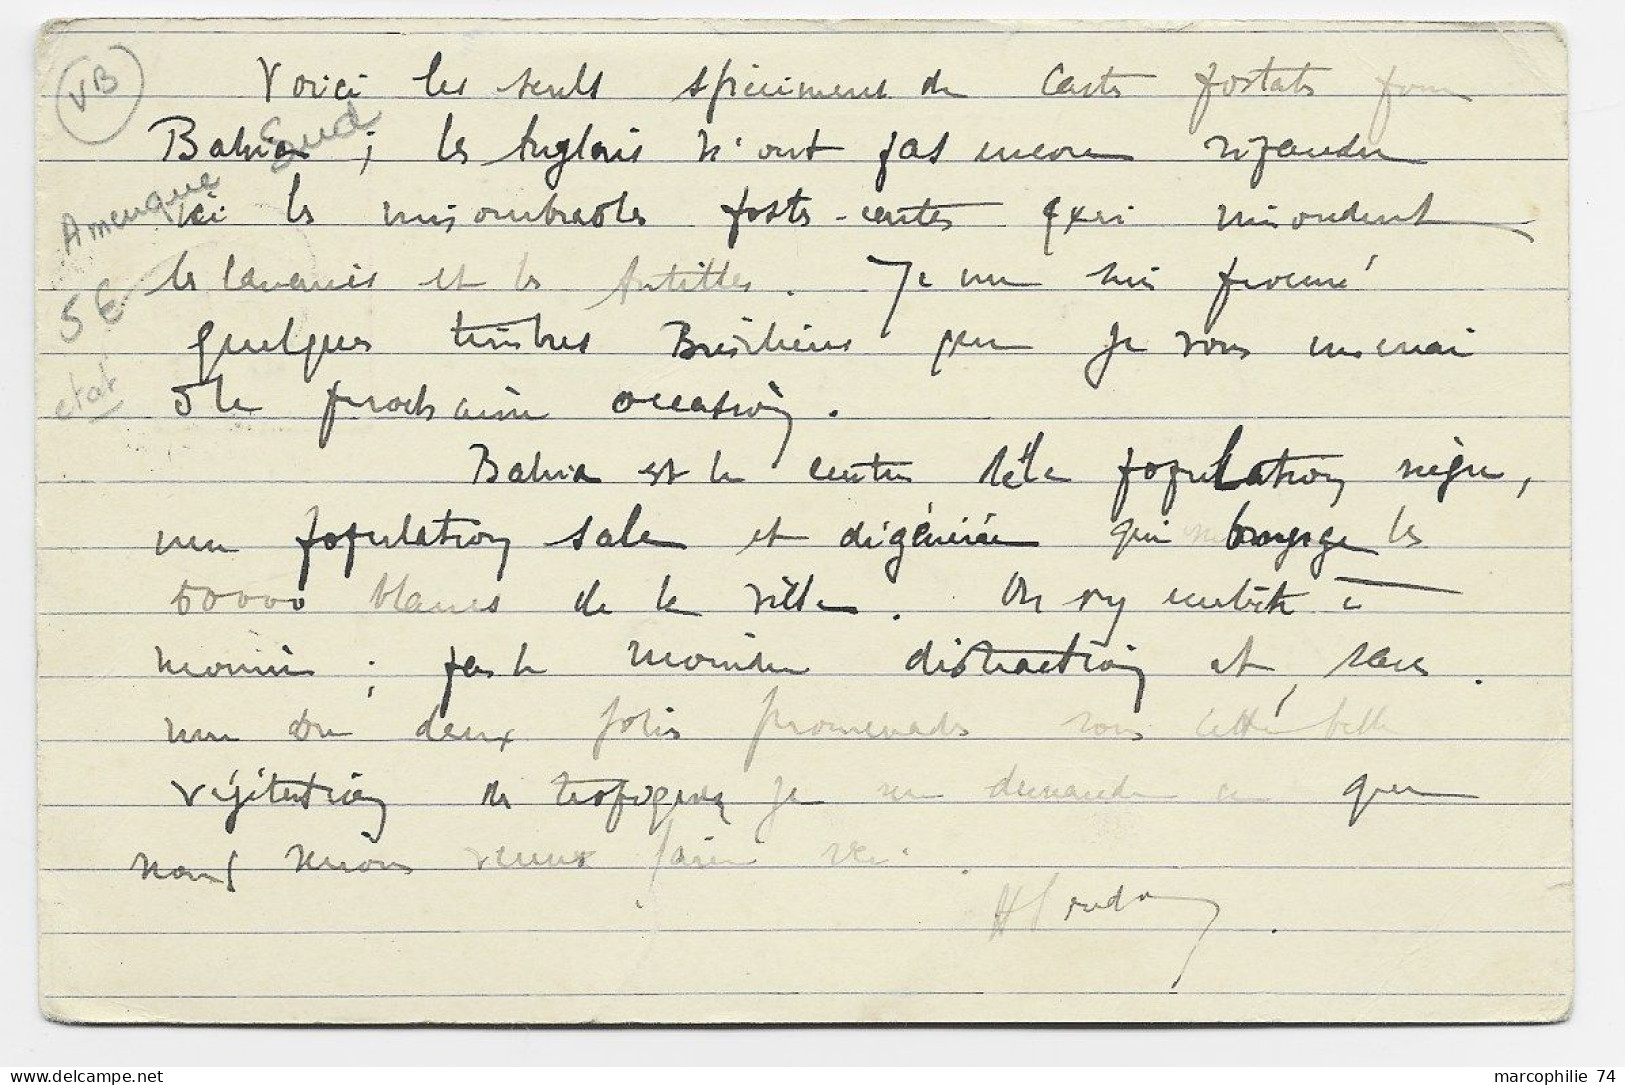 VB
Voici les seuls spécimens de cartes postales pour
Bahia ; les Anglais n'ont pas encore répandu
ici les innombrables posts-cartes qui inondent
les Canaries et les Antilles. Je me suis procuré
quelques timbres Brésiliens que je vous enverrai
à la prochaine occasion.
Bahia est le centre de la population nègre,
une population sale et dégénérée qui les
50000 blancs de la ville. On s'y embête à
mourir ; pas la moindre distraction et, sauf
une ou deux jolies promenades sous cette belle
végétation des tropiques je me demande ce que
nous serions venus faire ici.
Amerique Sud
SE
etat
marcophilie 74